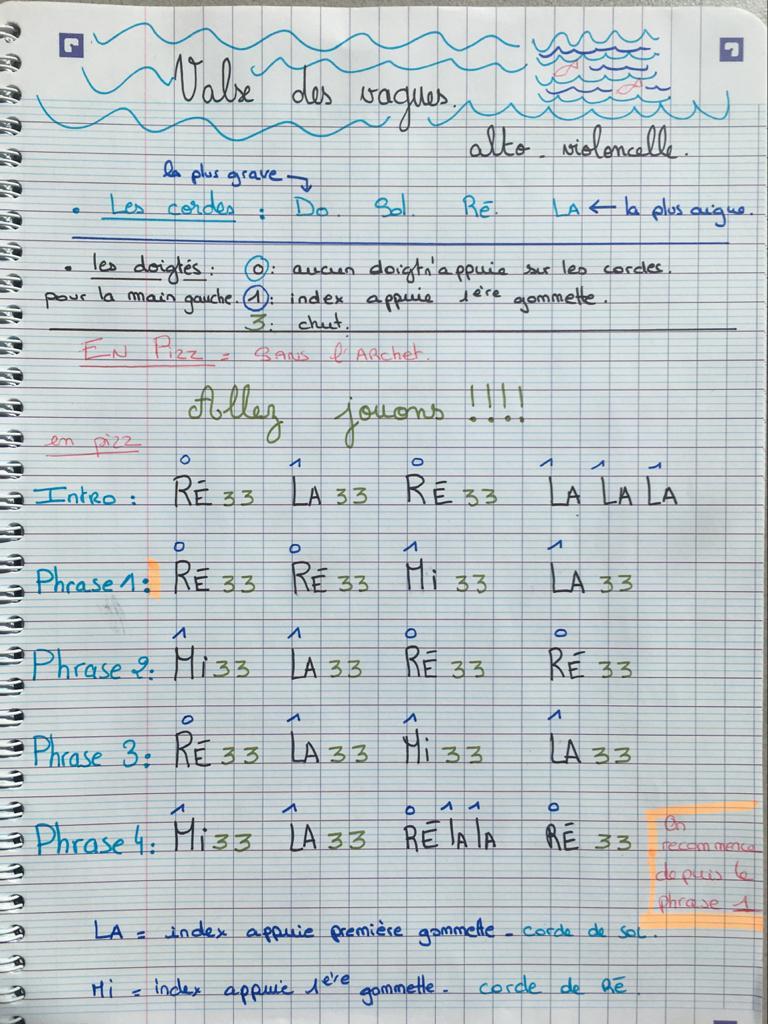 Valse des vagues.
alto - violoncelle.
la plus grave →
• Les cordes : Do. Sol. Ré. LA ← la plus aigue.
• les doigtés : 0 : aucun doigt n'appuie sur les cordes.
pour la main gauche. 1 : index appuie 1ère gommette.
3 : chut.
EN Pizz = SANS l'ARchet.
Allez jouons !!!!
en pizz
0 1 0 1 1 1
Intro : RÉ 33 LA 33 RÉ 33 LA LA LA
0 0 1 1
Phrase 1 : RÉ 33 RÉ 33 Mi 33 LA 33
1 1 0 0
Phrase 2 : Mi 33 LA 33 RÉ 33 RÉ 33
0 1 1 1
Phrase 3 : RÉ 33 LA 33 Mi 33 LA 33
1 1 0 1 1 0
Phrase 4 : Mi 33 LA 33 RÉ lA lA RÉ 33
On
recommence
depuis la
phrase 1
LA = index appuie première gommette - corde de sol.
Mi = index appuie 1ère gommette - corde de Ré.